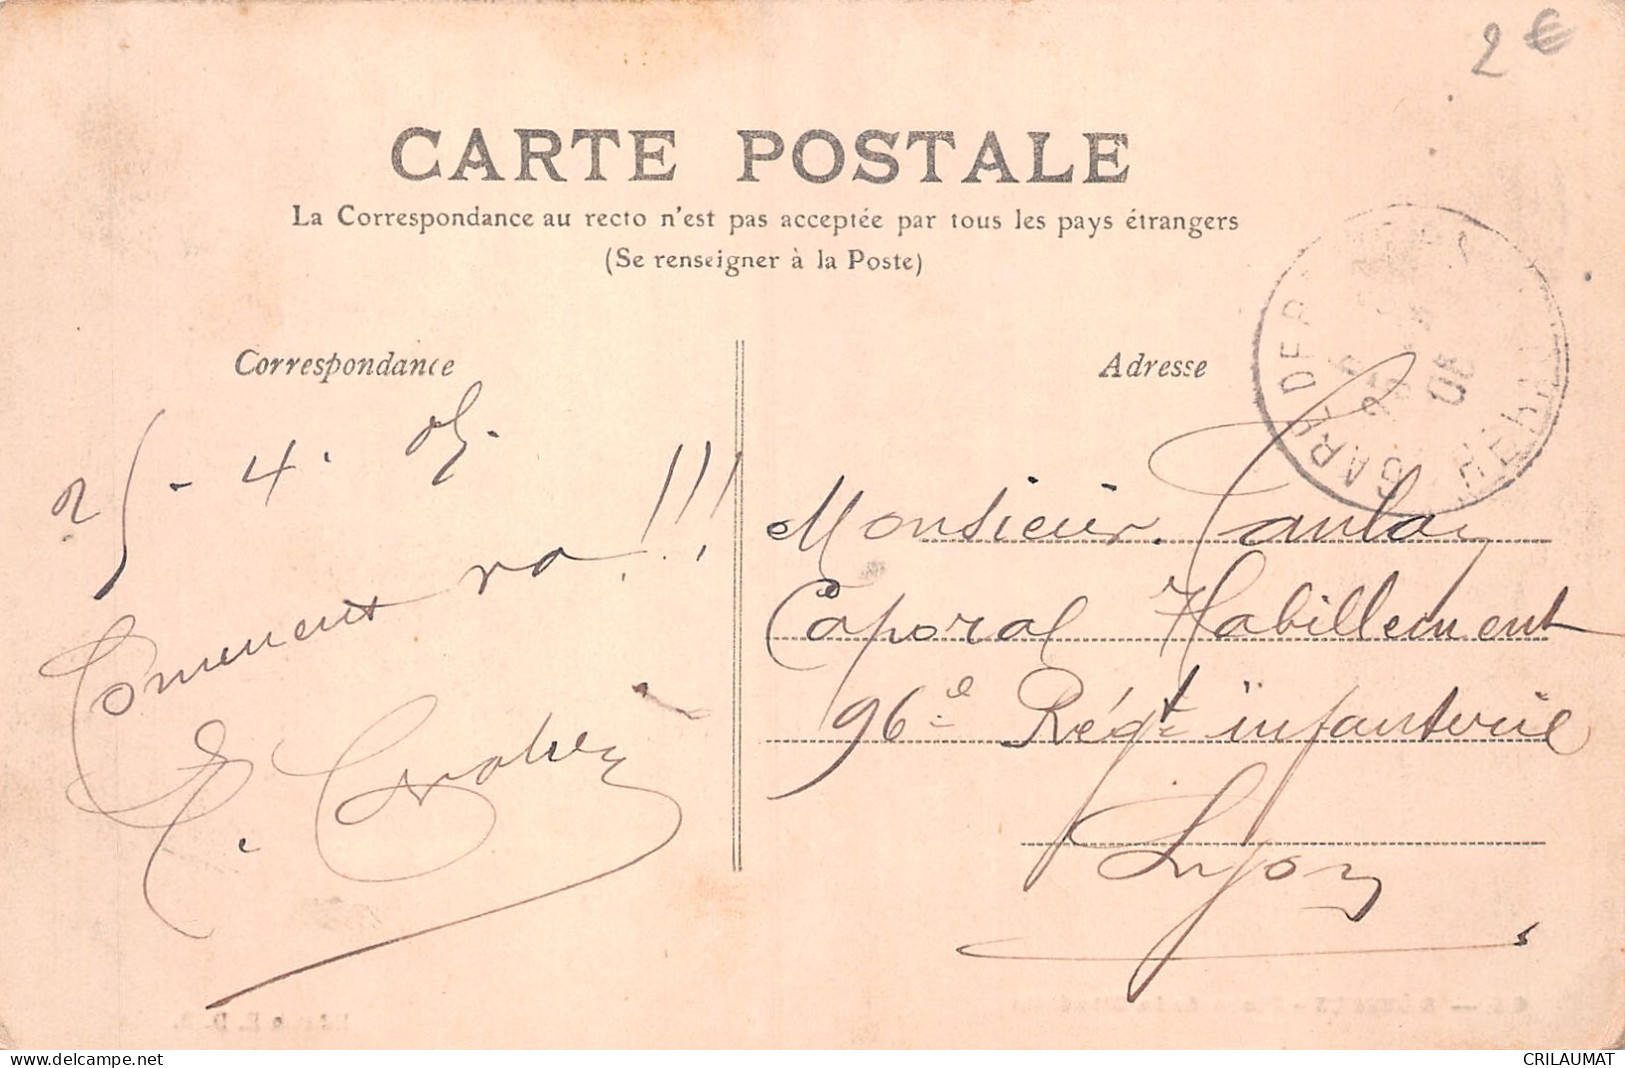 2 €
CARTE POSTALE
La Correspondance au recto n'est pas acceptée par tous les pays étrangers
(Se renseigner à la Poste)
Correspondance
25 - 4 . 05.
Comment va !!!
E.
Adresse
GARE DE
25
05
HÉRAULT
Monsieur
Caporal Habillement
96e Régt infanterie
Lyon
delcampe.net
CRILAUMAT